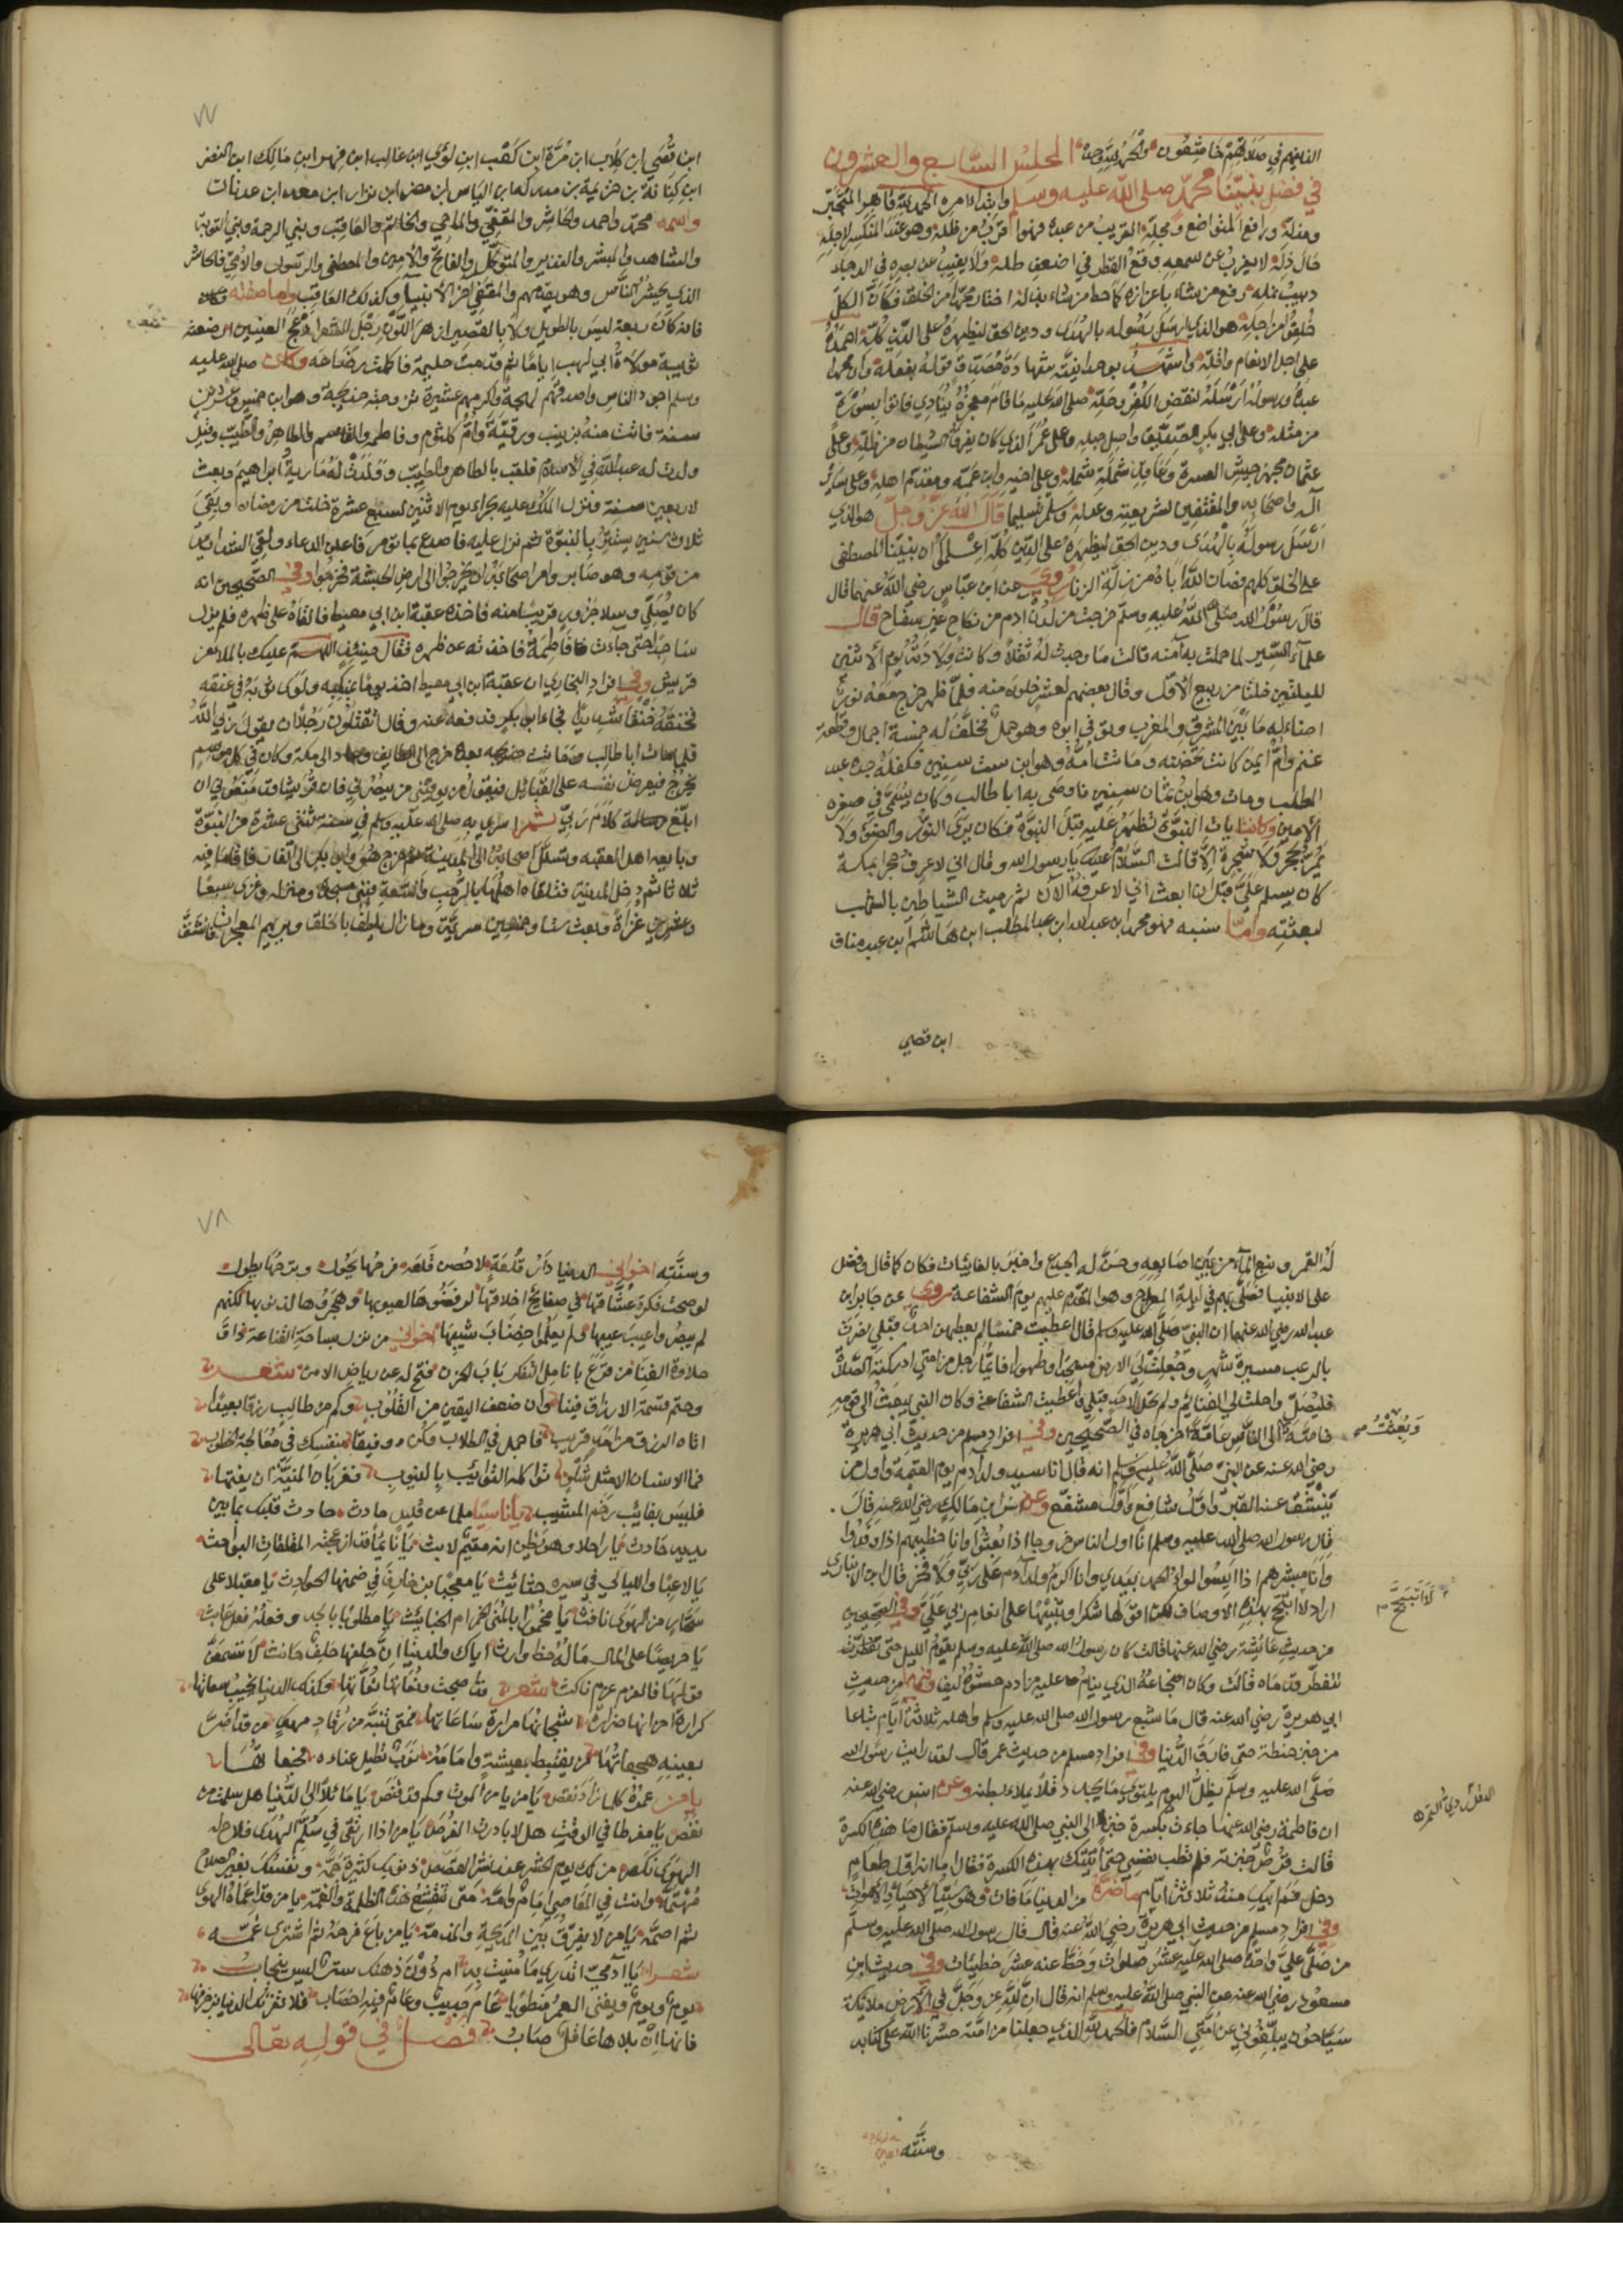 الذين هم في صلاتهم خاشعون والحمد لله وحده المجلس السابع والعشرون
في فضل نبينا محمد صلى الله عليه وسلم وابتداء امره الحمد لله قاهر المتجبر
ومذله ورافع المتواضع ومجله القريب من عبده فهو اقرب من ظله وهو عند المنكسر لاجله
حال ذله لا يعزب عن سمعه وقع القطر في اضعف طله ولا يغيب عن بصره في الدجا
دبيب نمله رفع من شاء باعزازه كما حط من شاء بذله اختار محمدا من الخلق فكان الكل
خلقوا من اجله هو الذي ارسل رسوله بالهدى ودين الحق ليظهره على الدين كله احمده
على اجل الانعام واقله واشهد بوحدانيته شهادة مصدق قوله بفعله وان محمدا
عبده ورسوله ارسله لنقض الكفر وحله صلى الله عليه ما قام معجزه ينادي فاتوا بسورة
من مثله وعلى ابي بكر الصديق واصل حبله وعلى عمر الذي كان يفرق الشيطان من ظله وعلى
عثمان مجهز جيش العسرة وعلى اخيه وابن عمه ومقدم اهله وعلى سائر
آله واصحابه والمقتفين لشريعته وعدله وسلم تسليما قال الله عز وجل هو الذي
ارسل رسوله بالهدى ودين الحق ليظهره على الدين كله اعلموا ان نبينا المصطفى
على الخلق كلهم فصان الله اباه من زلة الزنا روي عن ابن عباس رضي الله عنهما قال
قال رسول الله صلى الله عليه وسلم خرجت من لدن ادم من نكاح غير سفاح قال
علماء السير لما حملت به آمنه قالت ما وجدت له ثقلا وكانت ولادته يوم الاثنين
لليلتين خلتا من ربيع الاول وقال بعضهم لعشر خلون منه فلما ظهر خرج معه نور
اضاء له ما بين المشرق والمغرب وتوفي ابوه وهو حمل فخلف له خمسة اجمال وقطعة
غنم وام ايمن كانت تحضنه وماتت امه وهو ابن ست سنين فكفله جده عبد
المطلب ومات وهو ابن ثمان سنين فاوصى به ابا طالب وكان يسمى في صغره
الامين وكانت ايات النبوة تظهر عليه قبل النبوة فكان يرى النور والضوء ولا
يمر بحجر ولا شجرة الا قالت السلام عليك يا رسول الله وقال اني لاعرف حجرا بمكة
كان يسلم علي قبل ان ابعث اني لاعرفه الآن ثم رميت الشياطين بالشهب
لبعثته واما نسبه فهو محمد ابن عبدالله ابن عبد المطلب ابن هاشم ابن عبد مناف
ابن قصي
٧٧
ابن قصي ابن كلاب ابن مرة ابن كعب ابن لؤي ابن غالب ابن فهر ابن مالك ابن النضر
ابن كنانة بن خزيمة بن مدركة ابن الياس ابن مضر ابن نزار ابن معد ابن عدنان
واسمه محمد واحمد والحاشر والمقفي والماحي والخاتم والعاقب ونبي الرحمة ونبي التوبة
والشاهد والمبشر والنذير والمتوكل والفاتح والامين والمصطفى والرسول والامي فالحاشر
الذي يحشر الناس وهو يقدمهم والمقفي اخر الانبيا وكذلك العاقب واما صفته
فانه كان ربعة ليس بالطويل ولا بالقصير ازهر اللون رجل الشعر ادعج العينين ارضعته
ثويبة مولاة ابي لهب اياما ثم قدمت حليمة فاكملت رضاعه وكان صلى الله عليه
وسلم اجود الناس واصدقهم لهجة واكرمهم عشيرة تزوجته خديجة وهو ابن خمس وعشرين
سنة فاتت منه بزينب ورقية وام كلثوم وفاطمة والقاسم والطاهر والطيب وقيل
ولدت له عبدالله في الاسلام فلقب بالطاهر والطيب وولدت له مارية ابراهيم وبعث
لاربعين سنة فنزل الملك عليه بحراء يوم الاثنين لسبع عشرة خلت من رمضان وبقي
ثلاث سنين يستتر بالنبوة ثم نزل عليه فاصدع بما تومر فاعلن الدعاء ولقي الشدائد
من قومه وهو صابر وامر اصحابه ان يخرجوا الى ارض الحبشة فخرجوا وفي الصحيحين انه
كان يصلي وسلا جزور قريبا منه فاخذه عقبة ابن ابي معيط فالقاه على ظهره فلم يزل
ساجدا حتى جاءت فاطمة فاخذته عن ظهره فقال حينئذ اللهم عليك بالملا من
قريش وفي افراد البخاري ان عقبة ابن ابي معيط اخذ يوما بمنكبه ولوى ثوبه في عنقه
فخنقه خنقا شديدا فجاء ابو بكر فدفعه عنه وقال اتقتلون رجلا ان يقول ربي الله
فلما مات ابا طالب وماتت خديجه بعده خرج الى الطايف وعاد الى مكة وكان في كل موسم
يخرج فيعرض نفسه على القبائل فيقول من يوويني من ينصرني فان قريشا قد منعوني ان
ابلغ كلام ربي ثم اسري به صلى الله عليه وسلم في سنة ثنتي عشرة من النبوة
وبايعه اهل العقبه وتسلل اصحابه الى المدينة ثم خرج هو وابو بكر الى الغار فاقاما فيه
ثلاثا ثم دخل المدينة فتلقاه اهلها بالرحب والسعة فبنى مسجده ومنزله وغزى سبعا
وعشرين غزاة وبعث ستا وخمسين سرية وما زال يلطف بالخلق ويريهم المعجزات فانشق
له القمر ونبع الماء من بين اصابعه وحن له الجذع واخبر بالغائبات فكان كما قال وفضل
على الانبيا فصلى بهم في ليلة المعراج وهو المقدم عليهم يوم الشفاعة روي عن جابر ابن
عبدالله رضي الله عنهما ان النبي صلى الله عليه وسلم قال اعطيت خمسا لم يعطهن احد قبلي نصرت
بالرعب مسيرة شهر وجعلت لي الارض مسجدا وطهورا فايما رجل من امتي ادركته الصلاة
فليصل واحلت لي الغنائم ولم تحل لاحد قبلي واعطيت الشفاعة وكان النبي يبعث الى قومه
خاصة الى الناس عامة اخرجاه في الصحيحين وفي افراد مسلم من حديث ابي هريرة
وبعثت
رضي الله عنه عن النبي صلى الله عليه وسلم انه قال انا سيد ولد آدم يوم القيمة واول من
ينشق عنه القبر واول شافع واول مشفع وعن انس ابن مالك رضي الله عنه قال
قال رسول الله صلى الله عليه وسلم انا اول الناس خروجا اذا بعثوا وانا خطيبهم اذا وفدوا
وانا مبشرهم اذا ايسوا لواء الحمد بيدي وانا اكرم ولد آدم على ربي ولا فخر قال ابن الانباري
اراد لا اتبجح بهذه الاوصاف لكن اقولها شكرا وتنبيها على انعام ربي علي وفي الصحيحين
لا اتبجح
من حديث عائشة رضي الله عنها قالت كان رسول الله صلى الله عليه وسلم يقوم الليل حتى تفطرت
تتفطر قدماه قالت وكان ضجاعه الذي ينام عليه من ادم حشوه ليفا وفيهما من حديث
ابي هريرة رضي الله عنه قال ما شبع رسول الله صلى الله عليه وسلم واهله ثلاثة ايام تباعا
من خبز حنطة حتى فارق الدنيا وفي افراد مسلم من حديث عمر قال لقد رايت رسول الله
صلى الله عليه وسلم يظل اليوم يلتوي ما يجد دقلا يملاء بطنه وعن انس رضي الله عنه
الدقل ردي التمر
ان فاطمة رضي الله عنها جاءت بكسرة خبز الى النبي صلى الله عليه وسلم فقال ما هذه الكسرة
قالت قرص خبزته فلم تطب نفسي حتى اتيتك بهذه الكسرة فقال اما انه اول طعام
دخل فم ابيك منذ ثلاثة ايام ما ضره من الدنيا ما فات وهو سيد الاحياء والاموات
وفي افراد مسلم من حديث ابي هريرة رضي الله عنه قال قال رسول الله صلى الله عليه وسلم
من صلى علي واحدة صلى الله عليه عشر صلوات وحط عنه عشر خطيئات وفي حديث ابن
مسعود رضي الله عنه عن النبي صلى الله عليه وسلم انه قال ان لله عز وجل في الارض ملائكة
سياحون يبلغوني عن امتي السلام فالحمد لله الذي جعلنا من امته حشرنا الله على كتابه
وسنته
٧٨
وسنته اخواني الدنيا دار قلعة لا حصن قلعه فرحها يحول وترحها يطول
لو صحت فكرة عشاقها في صفايح اخلاقها لرفضوها لعيوبها وهجروها لذنوبها لكنهم
لم يبصروا عيب عيبها ولم يعلموا خضاب شيبها اخواني من نزل بساحة القناعة ذاق
حلاوة الغنا من قرع بانامل التفكر باب الحزن فتح له عن رياض الامن شعر
وحتم قسمة الارزاق فينا وان ضعف اليقين من القلوب وكم من طالب رزقا بعيدا
اتاه الرزق من امد قريب فاجمل في الطلاب وكن رفيقا بنفسك في معالجة الخطوب
فما الانسان الا مثل شلو توكله النوائب بالنيوب
فليس بفائت رغم المشيب يا ناسيا
يا راحلا وهو يظن انه مقيم لابث يا نائما قد ازعجته المقلقات البواحث
يا لاعبا والليالي في سيره حثائث يا معجبا بزخارف في ضمنها الحوادث يا مقبلا على
سحار من الهوى نافث يا مطلوبا بالجد وفعله فعل عابث
يا حريصا على المال ماله حظ وارث اياك والدنيا ان حلفها حلف حانث لا تسمعن
قولها فالعزم عزم ناكث شعر
بعينه هجعاتها
يا من عمره كلما زاد نقص يا من يامن الموت وكم قد قنص يا مائلا الى الدنيا هل سلمت من
نقص يا مفرطا في الوقت هل لا بادرت الفرص يا من اذا ارتقى في سلم الهدى فلاح له
الهوى نكص من لك يوم الحشر عند نشر القصص ذنوبك كثيرة جمة ونفسك بغير الصلاح
مهتمة وانت في المعاصي امام وامة متى تنقشع هذه الظلمة والغمة يا من قد اعماه الهوى
ثم اصمه يا من لا يفرق بين المديحة والمذمة يا من باع فرحه ثم اشترى غمه
شعر يا ادمي اتدري ما منيت به ام دون ذهنك ستر ليس ينجاب
يوم ويوم ويفنى العمر منطويا عام جديب وعام فيه اخصاب فلا تغرنك الدنيا بزخرفها
فاريها ان بلاها عاقل صاب فصل في قوله تعالى